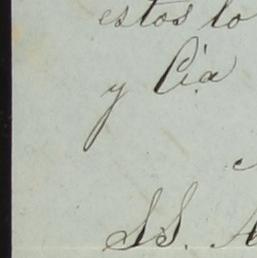 estos lo
y Cia
SS. A